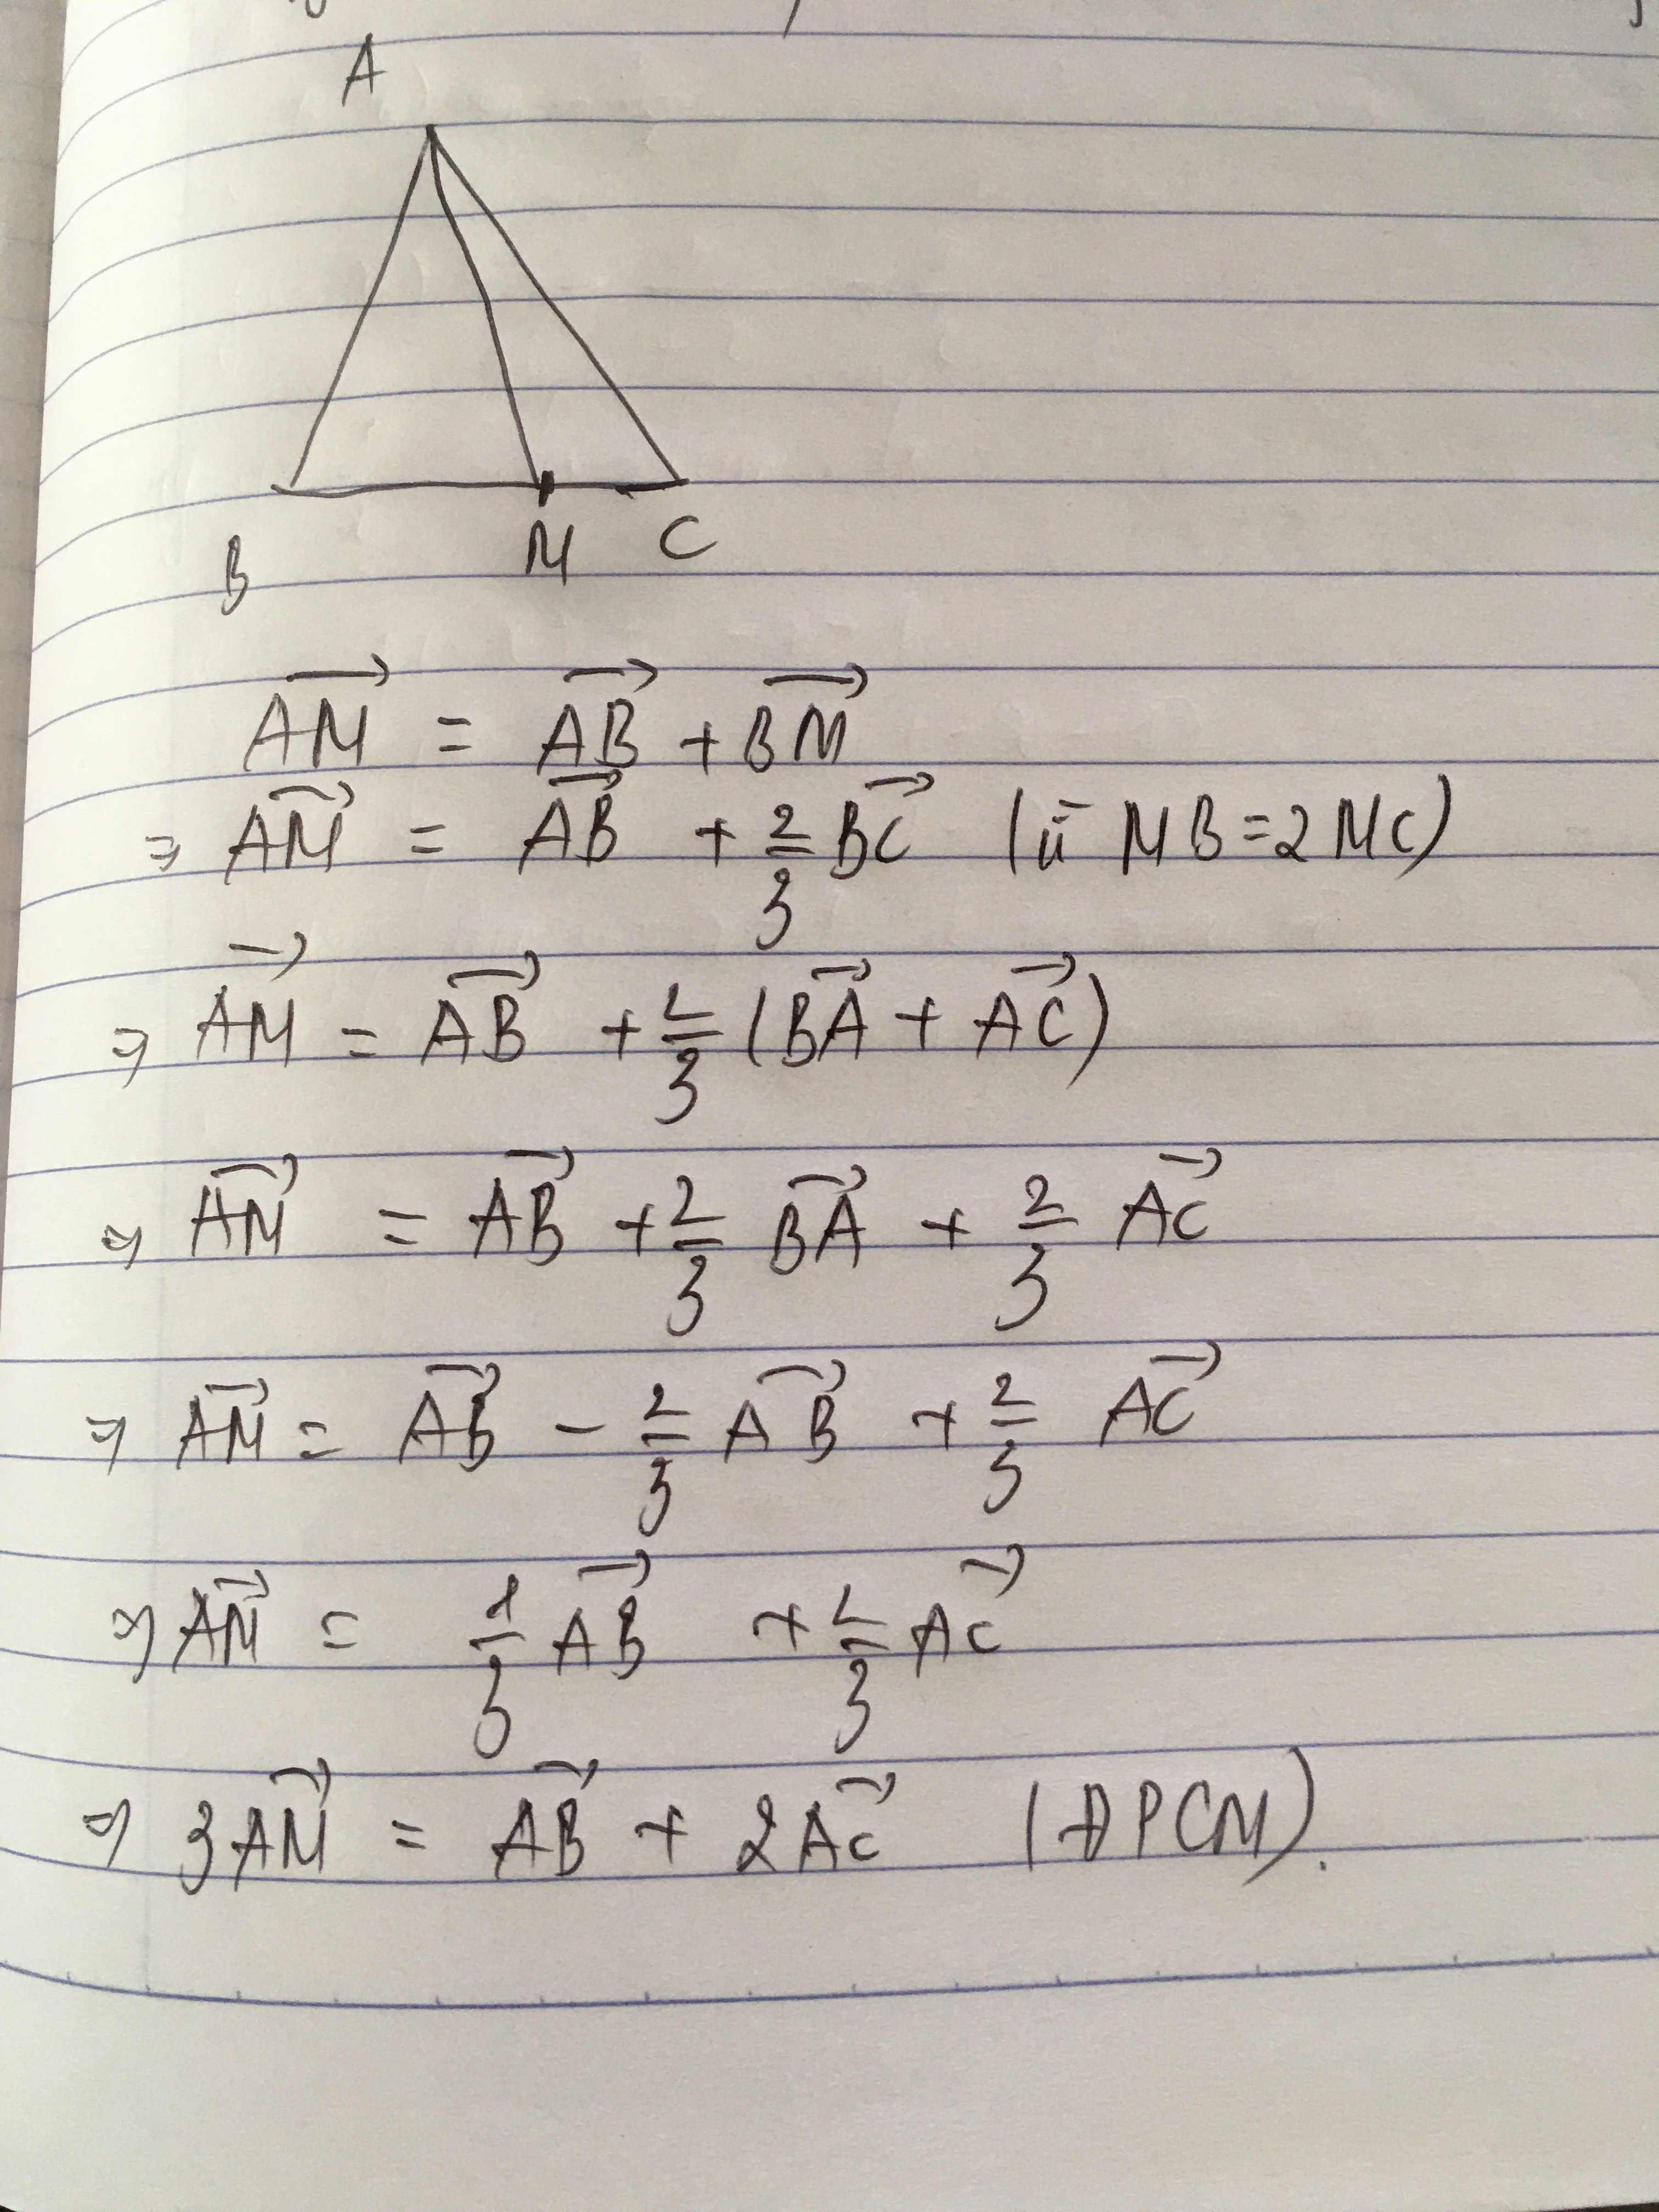 A
B M C
AM→ = AB→ + BM→
⇒ AM→ = AB→ + 2/3 BC→ (vì MB = 2MC)
⇒ AM→ = AB→ + 2/3 (BA→ + AC→)
⇒ AM→ = AB→ + 2/3 BA→ + 2/3 AC→
⇒ AM→ = AB→ - 2/3 AB→ + 2/3 AC→
⇒ AM→ = 1/3 AB→ + 2/3 AC→
⇒ 3AM→ = AB→ + 2AC→ (ĐPCM).